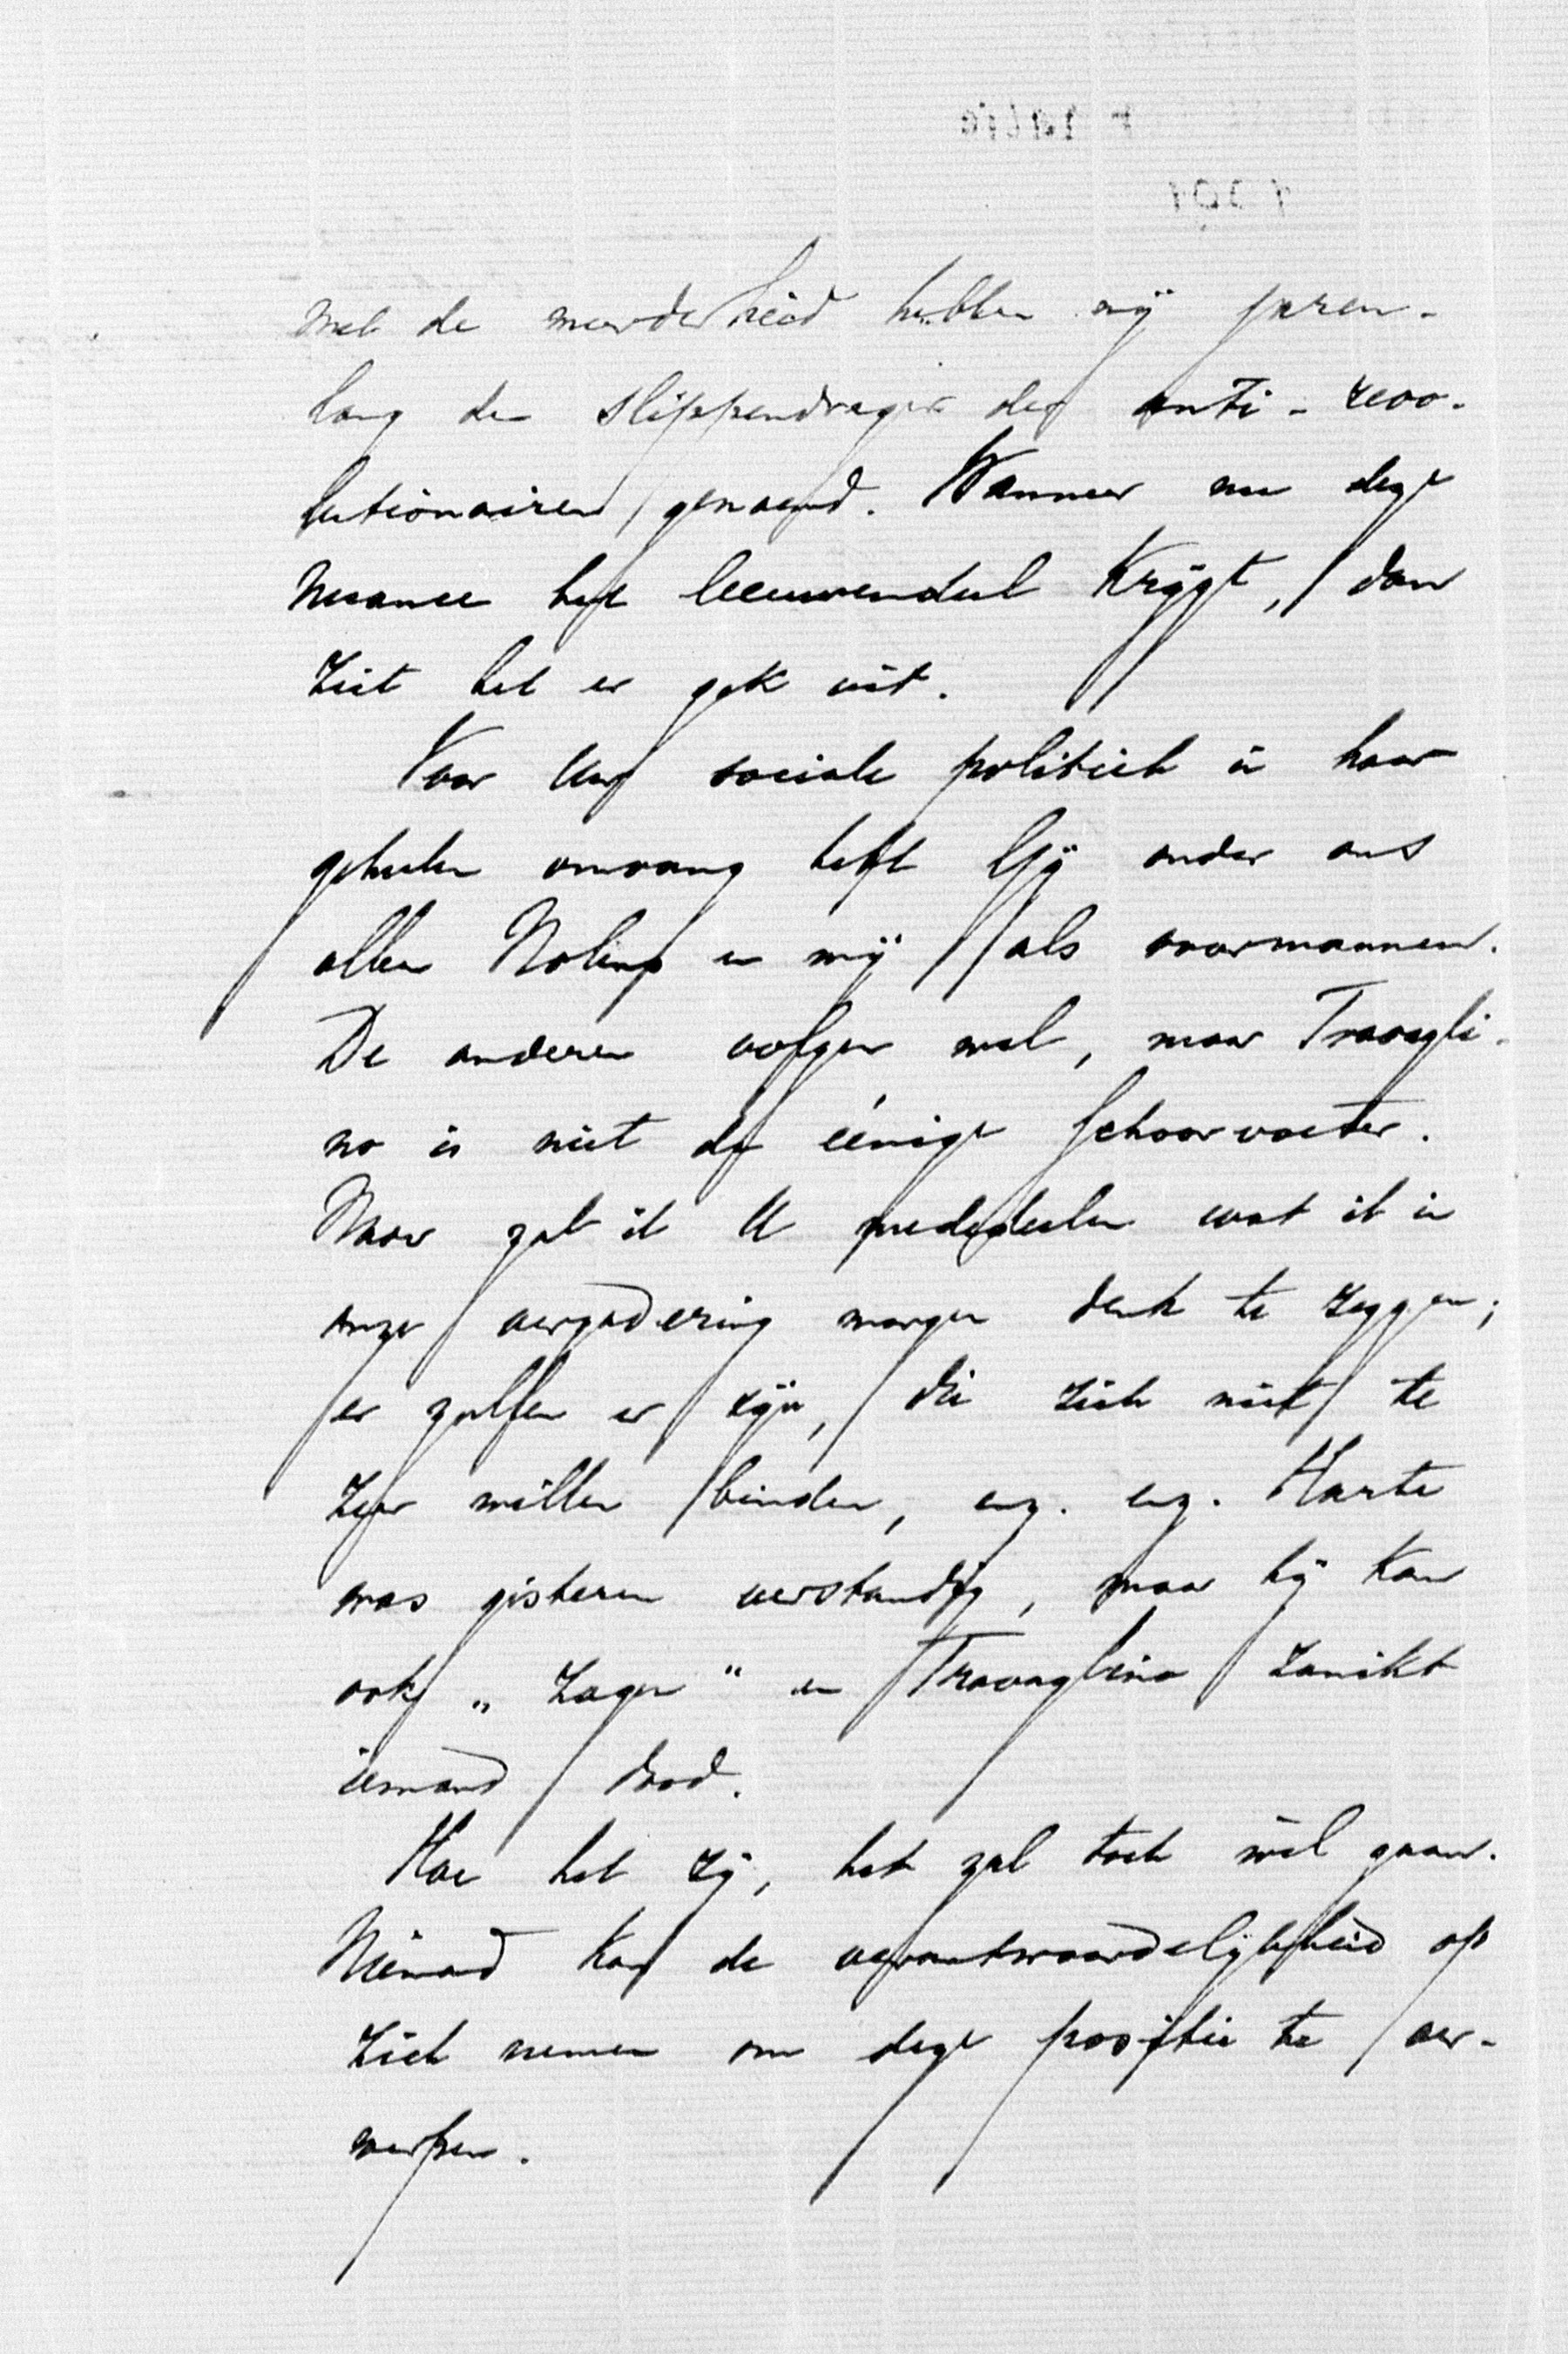 met de meerderheid hebben mij jaren-
lang de slippendrager der anti-revo-
lutionairen genoemd. Wanneer nu deze
nuance het leeuwendeel krijgt, dan
ziet het er gek uit.
Voor Uw sociale politiek in haar
geheelen omvang hebt Gij onder ons
allen Nolens en mij als voormannen.
De anderen volgen wel, maar Travagli-
no is niet de éénige schoorvoeter.
Maar zal ik U mededeelen wat ik in
onze vergadering morgen denk te zeggen;
er zullen er zijn, die zich niet te
zeer willen binden, enz. enz. Harte
was gisteren verstandig, maar hij kan
ook „zagen" en Travaglino zanikt
iemand dood.
Hoe het zij, het zal toch wel gaan.
Niemand kan de verantwoordelijkheid op
zich nemen om deze positie te ver-
werpen.